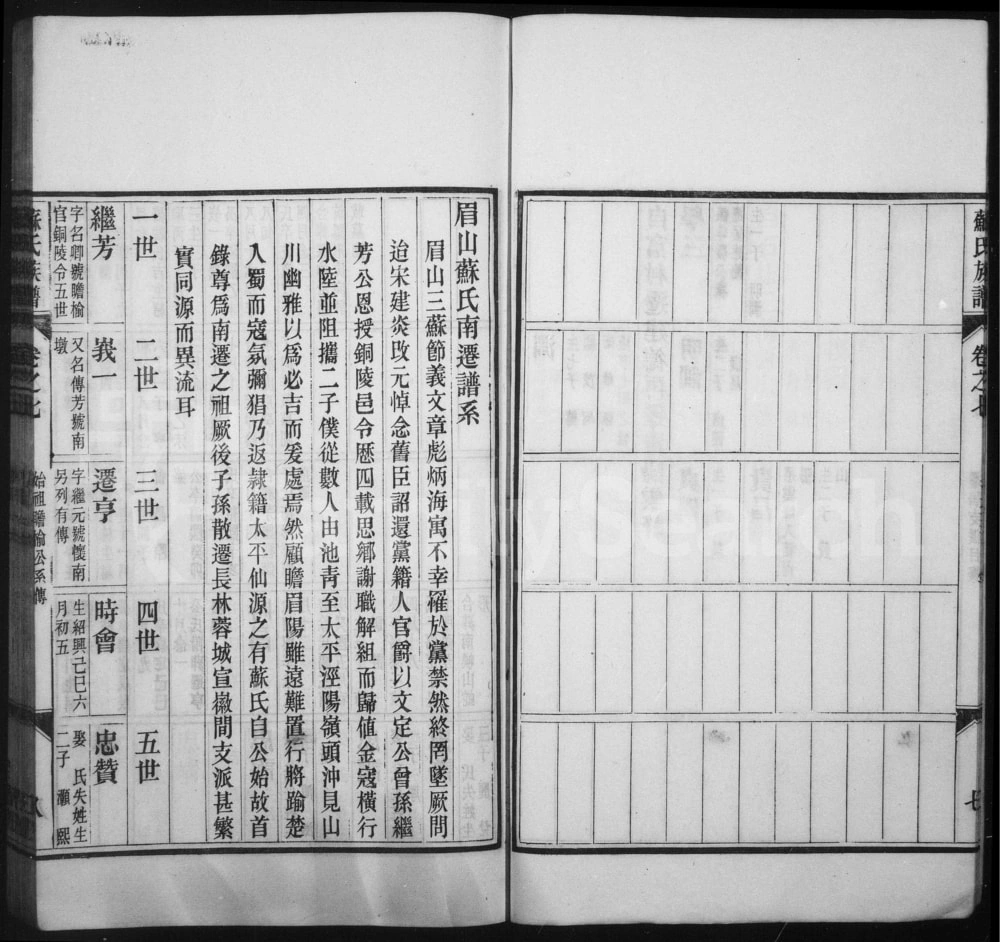 蘇氏族譜
卷之七
七
眉山蘇氏南遷譜系
眉山三蘇節義文章彪炳海寓不幸羅於黨禁然終罔墜厥問
迨宋建炎改元悼念舊臣詔還黨籍人官爵以文定公曾孫繼
芳公恩授銅陵邑令歷四載思鄉謝職解組而歸值金寇橫行
水陸並阻攜二子僕從數人由池青至太平涇陽嶺頭沖見山
川幽雅以爲必吉而爰處焉然顧瞻眉陽雖遠難置行將踰楚
入蜀而寇氛彌猖乃返隷籍太平仙源之有蘇氏自公始故首
錄尊爲南遷之祖厥後子孫散遷長林蓉城宣徽間支派甚繁
實同源而異流耳
一世
二世
三世
四世
五世
繼芳
字名卿號瞻榆
官銅陵令五世
峩一
又名傳芳號南
墩
遷亨
字繼元號懷南
另列有傳
時會
生紹興己巳六
月初五
忠贊
娶 氏失姓生
二子 灝 熙
蘇氏族譜
卷之七
始祖瞻榆公系傳
八